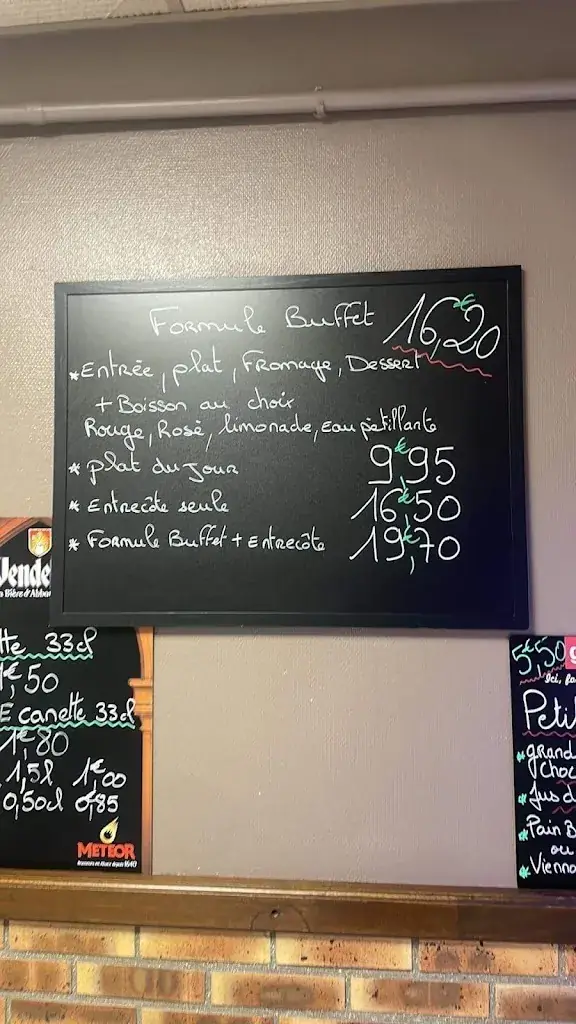 Formule Buffet 16,€20
* Entrée, plat, Fromage, Dessert
+ Boisson au choix
Rouge, Rosé, limonade, eau pétillante
* plat du Jour 9,€95
* Entrecôte seule 16,€50
* Formule Buffet + Entrecôte 19,€70
Vende
Bière d'Abba
tte 33cl
1€,50
E canette 33cl
1€,80
1,5l 1€00
0,50cl 0€,85
METEOR
Brasseurs en Alsace depuis 1640
5€,50
Ici, fa
Petit
* grand
Choc
* Jus d
* Pain B
ou
* Vienno